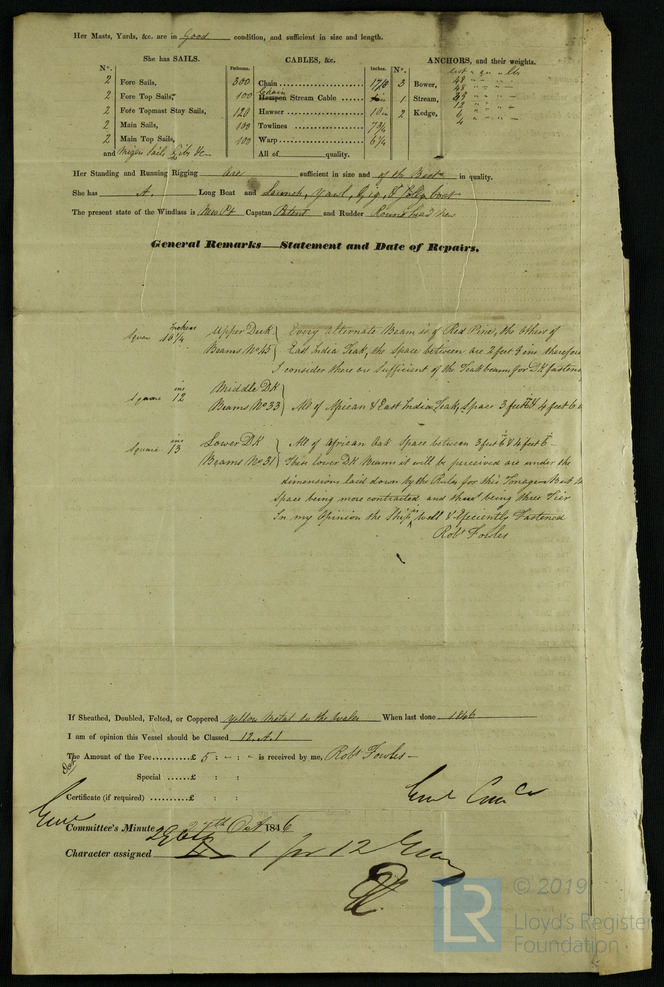 Her Masts, Yards, &c. are in Good condition, and sufficient in size and length.
She has SAILS.
CABLES, &c.
ANCHORS, and their weights.
N°.
Fathoms.
Inches.
N°.
2 Fore Sails,
300 Chain
3 Bower,
2 Fore Top Sails,
100 Hempen Chain Stream Cable
1 Stream,
2 Fore Topmast Stay Sails,
120 Hawser
2 Kedge,
2 Main Sails,
100 Towlines 7¾
2 Main Top Sails,
100 Warp 6¼
and Mizen Sails Jibs &c
All of quality.
Her Standing and Running Rigging are sufficient in size and of the Best in quality.
She has A Long Boat and Launch, Yawl, Gig, & Jolly boat
The present state of the Windlass is Capstan Patent and Rudder Round head new
General Remarks—Statement and Date of Repairs.
Square Inches Upper Deck Every alternate Beam is of Red Pine, the others of
Beams No 45 East India Teak, the space between are 2 feet 9 ins therefore
I consider there are sufficient of the Teak beams for DK fastens
Square ins 12 Middle DK
Beams No 33 All of African & East India Teak, Space 3 feet 6 & 4 feet 6
Square ins 13 Lower DK All of African Oak Space between 3 feet 6 & 4 feet 6
Beams No 31 These Lower DK Beams it will be perceived are under the
dimensions laid down by the Rules for this Tonnage But the
Space being more contracted and there being three Tier
In my opinion the Ship is well & efficiently Fastened
Robt Fowles
If Sheathed, Doubled, Felted, or Coppered Yellow Metal to the Wales When last done 1846
I am of opinion this Vessel should be Classed 12. A. 1
The Amount of the Fee £ 5 : - : - is received by me, Robt Fowles
Special £ : :
Certificate (if required) £ : :
Committee's Minute 27th Oct 1846
Character assigned A 1 for 12 Years
© 2019
LR
Lloyd's Register
Foundation